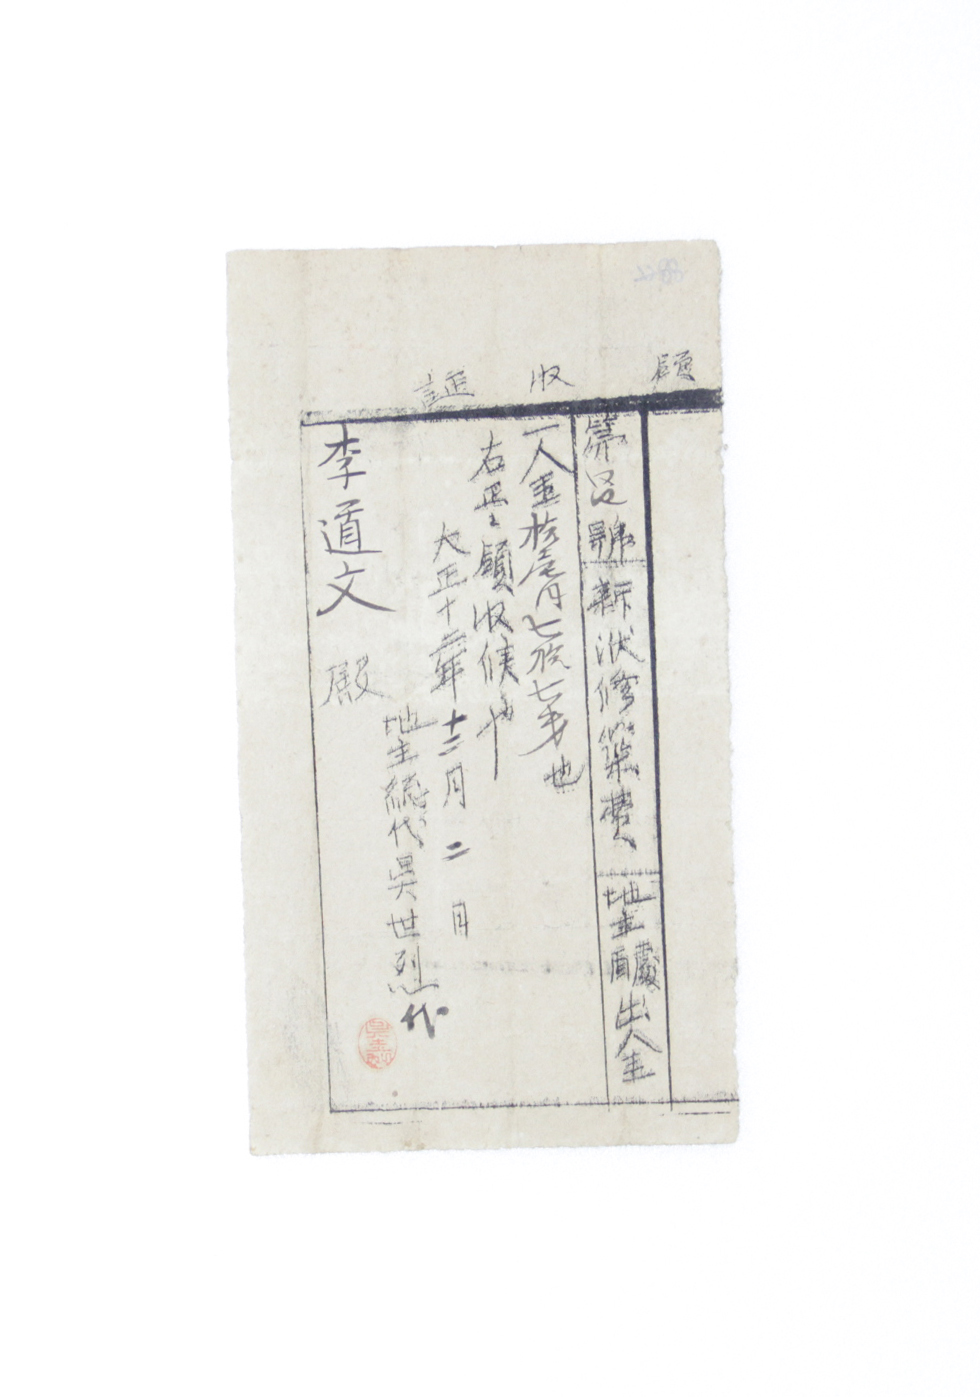 領收證
第 号 號 新洑修築費 地主醵出金
一金拾壱円七拾七戋也
右正ニ領收候也
大正十二年十二月二日
地主総代吳世烈代
李道文 殿